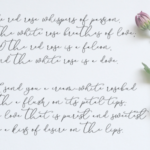 red rose whispers of passion,
the white rose breathes of love.
the red rose is a falcon,
the white rose is a dove.
send you a cream-white rosebud
a flush on its petal tips;
love that is purest and sweetest
a kiss of desire on the lips.